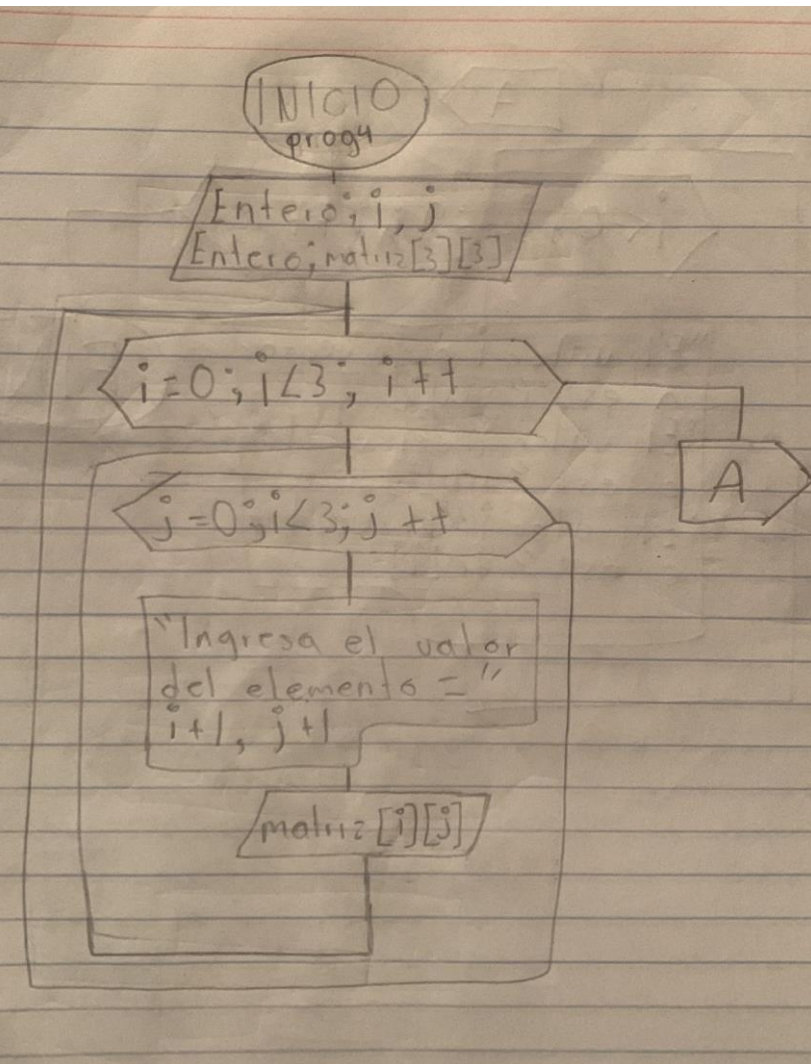 INICIO
prog4
Entero; i, j
Entero; matriz[3][3]
i=0; i<3; i++
A
j=0; i<3; j++
"Ingresa el valor
del elemento = "
i+1, j+1
matriz [i][j]